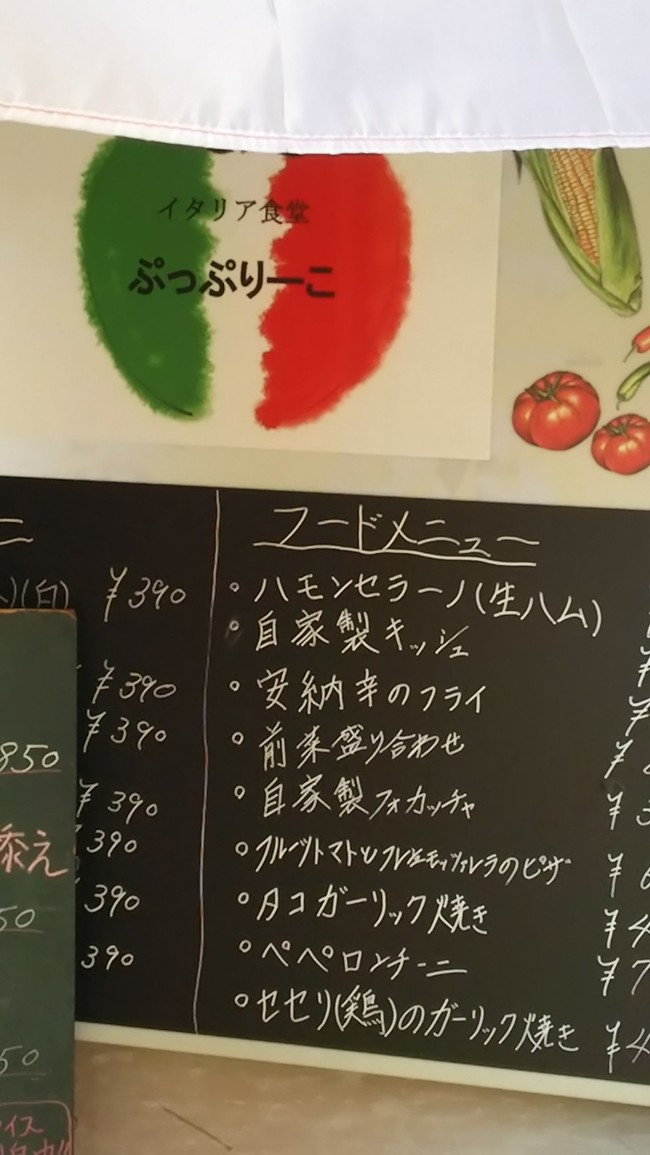 イタリア食堂
ぷっぷりーこ
フードメニュー
(白) ¥390
¥390
¥390
¥390
390
390
390
ハモンセラーノ(生ハム)
自家製キッシュ
安納辛のフライ
前菜盛り合わせ ¥
自家製フォカッチャ ¥
フルーツトマトとフレッシュモッツァレラのピザ ¥
タコガーリック焼き ¥4
ペペロンチーニ ¥7
セセリ(鶏)のガーリック焼き ¥4
850
添え
50
50